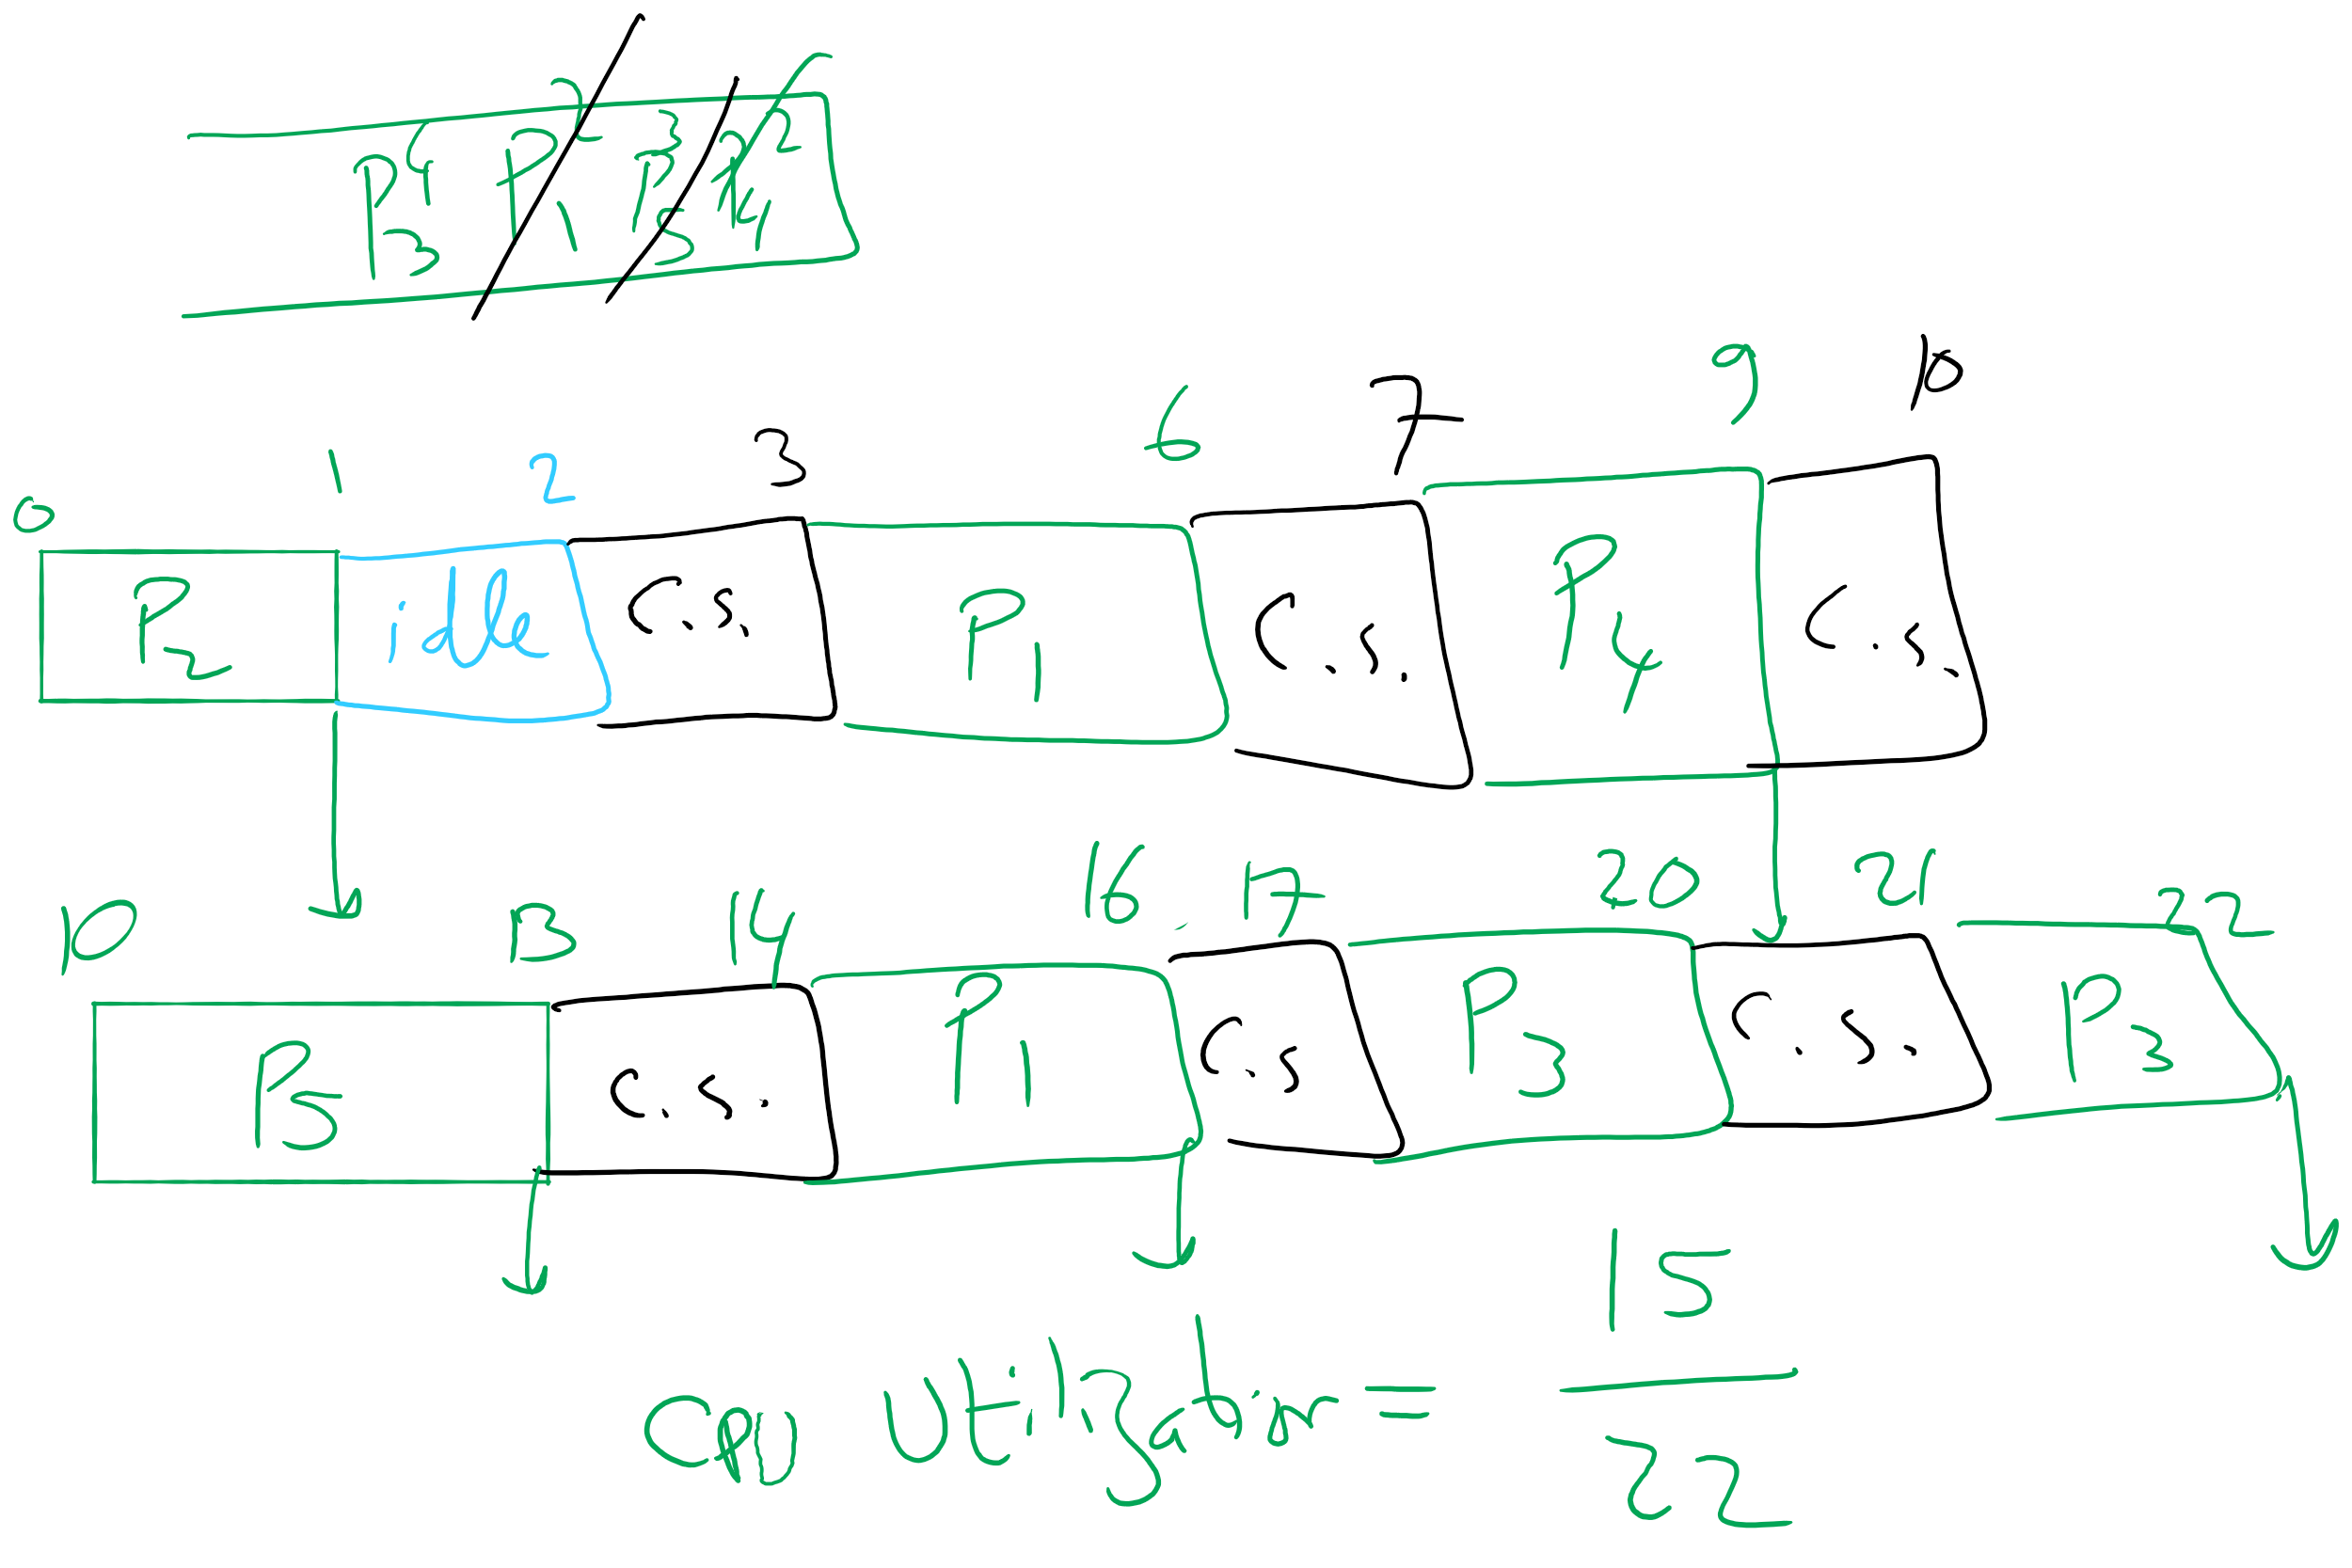 P3 4 P1 2 P5 3 P4 2
0 1 2 3 6 7 9 10
P2 idle C.S. P1 C.S. P4 C.S.
10 13 14 16 17 20 21 22
P5 C.S. P1 C.S P3 C.S. P3
CPU Utilization = 15
22